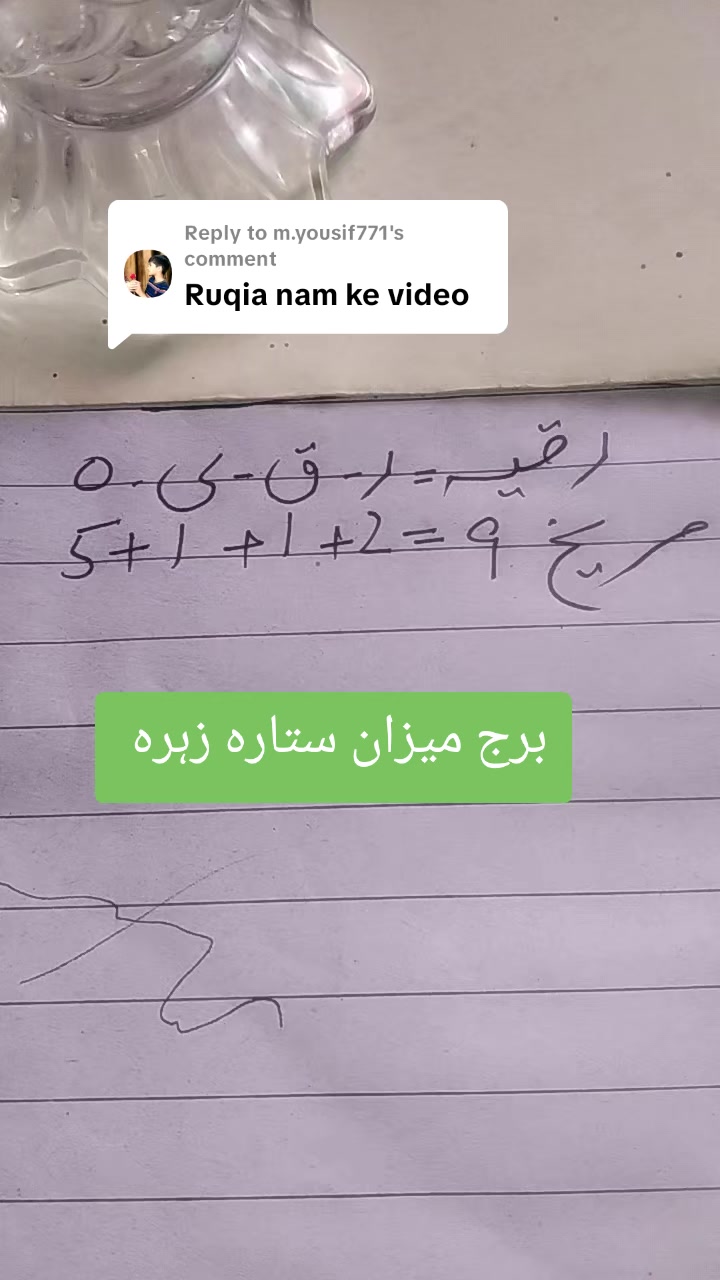 Reply to m.yousif771's
comment
Ruqia nam ke video
رقیہ = ر - ق - ی - ہ
مریخ 9 = 2 + 1 + 1 + 5
برج میزان ستارہ زہرہ